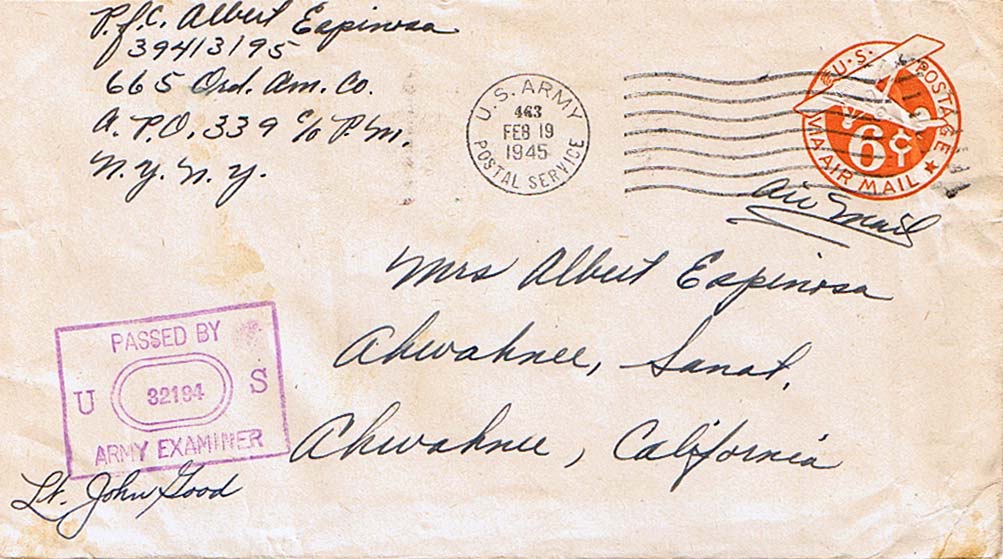 P.f.c. Albert Espinosa
39413195
665 Ord. Am. Co.
A.P.O. 339 c/o P.M.
N.Y. N.Y.
U.S. ARMY
463
FEB 19
1945
POSTAL SERVICE
U.S. POSTAGE
6¢
VIA AIR MAIL
Air Mail
Mrs Albert Espinosa
Ahwahnee, Sanat.
Ahwahnee, California
PASSED BY
U 32194 S
ARMY EXAMINER
Lt. John Good